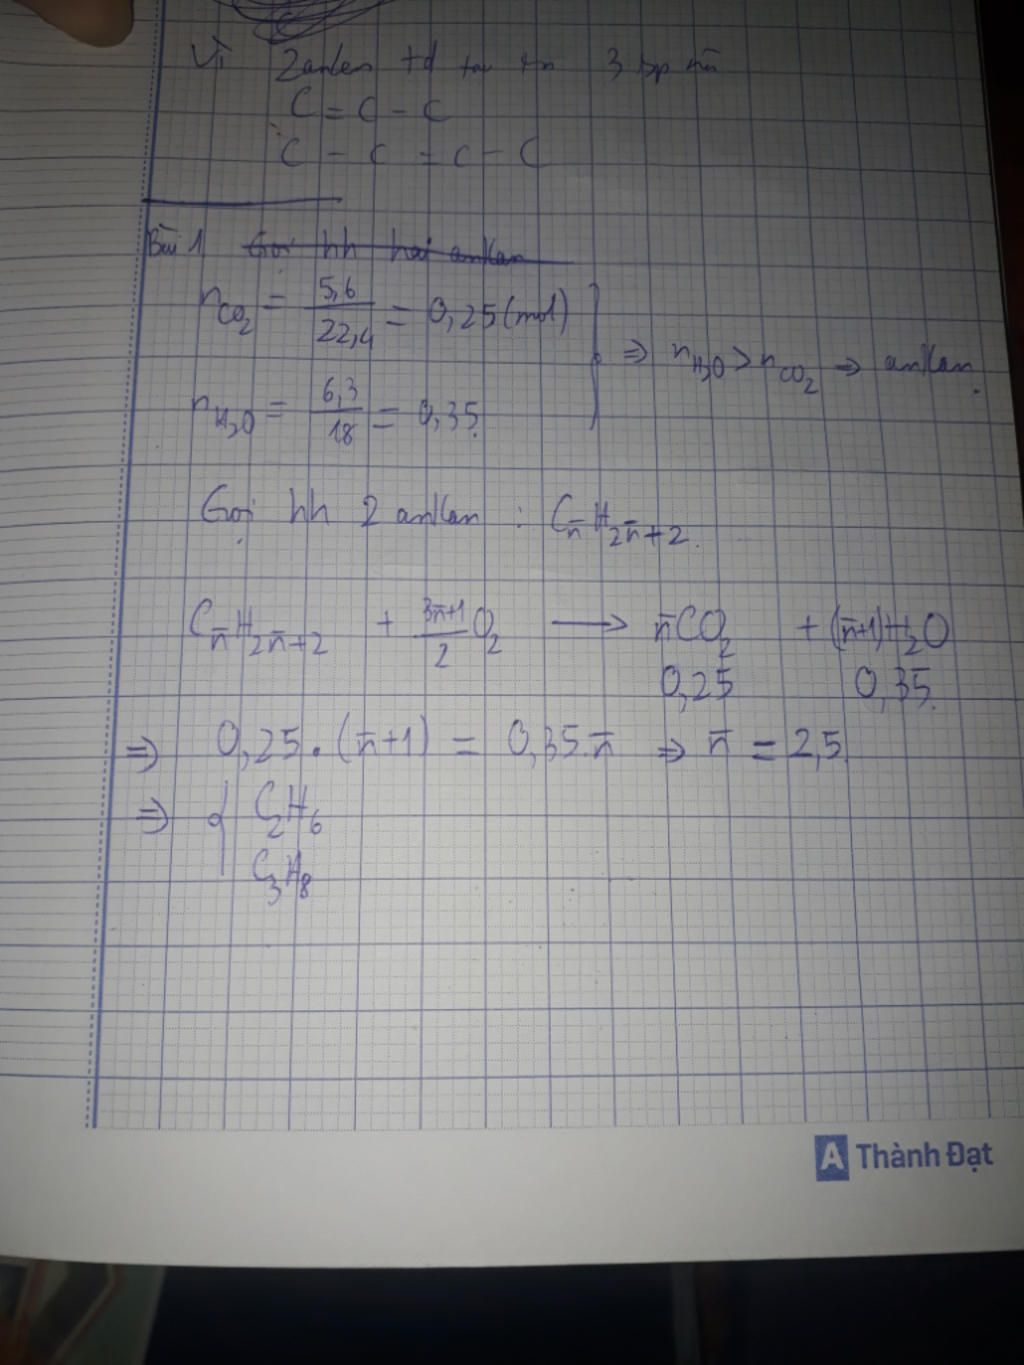 Vì 2 anken td tạo ra 3 sp
C = C - C
C - C = C - C
Bài 1 Gọi hh hai ankan
nCO₂ = 5,6 / 22,4 = 0,25 (mol)
⇒ nH₂O > nCO₂ ⇒ ankan.
nH₂O = 6,3 / 18 = 0,35.
Gọi hh 2 ankan : Cn̄H2n̄+2.
Cn̄H2n̄+2 + (3n̄+1)/2 O₂ ⟶ n̄CO₂ + (n̄+1)H₂O
0,25 0,35.
⇒ 0,25 . (n̄+1) = 0,35.n̄ ⇒ n̄ = 2,5.
⇒ { C₂H₆
C₃H₈
A Thành Đạt